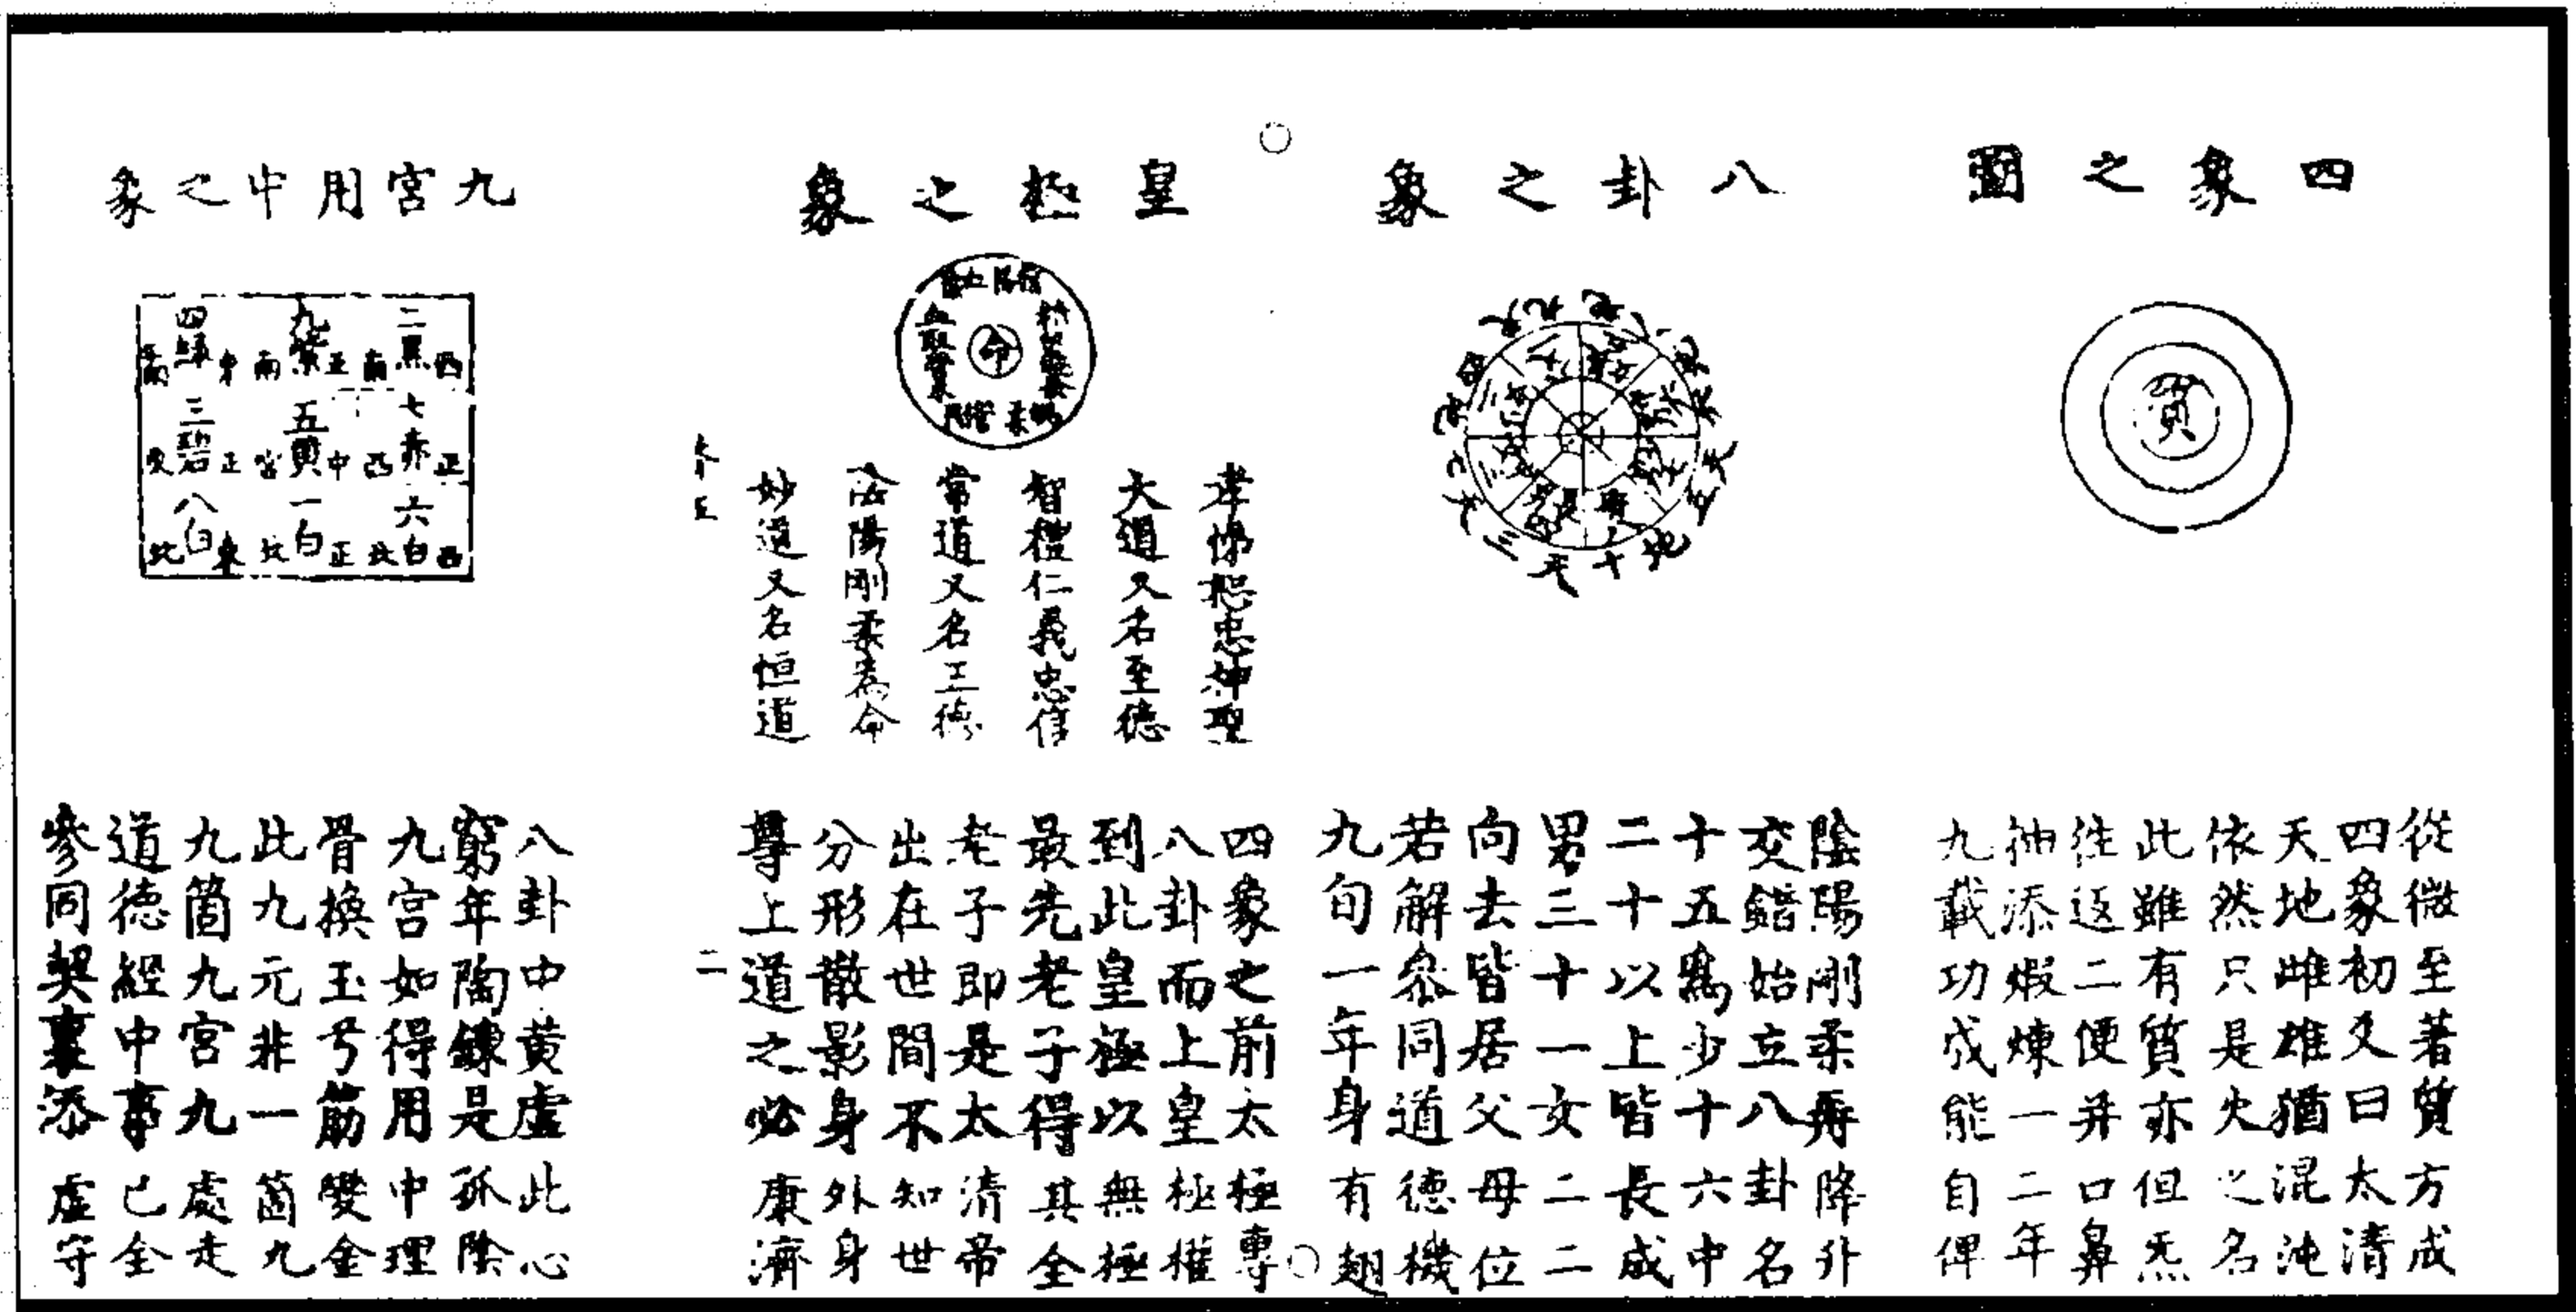 四象之圖
質
從微至著質方成
四象初爻曰太清
天地雌雄猶混沌
依然只是火之名
此雖有質亦但炁
往返二便并口鼻
抽添煅煉一二年
九載功成能自俾
八卦之象
陰陽剛柔再降升
交錯始立八卦名
十五為少十六中
二十以上皆長成
男三十一女二二
向去皆居父母位
若解叅同道德機
九旬一年身有翅
皇極之象
命
孝悌恕忠神聖
大道又名至德
智禮仁義忠信
常道又名王德
陰陽剛柔為命
妙道又名恒道
四象之前太極專
八卦而上皇極權
到此皇極以無極
最先老子得其全
老子即是太清帝
出在世間不知世
分形散影身外身
尊上道之必康濟
二
九宮用中之象
二黑 西南
九紫 正南
四綠 東南
七赤 正西
五黃 中宮
三碧 正東
六白 西北
一白 正北
八白 東北
八卦中黃虛此心
窮年陶鍊是孤陰
九宮如得用中理
骨換玉兮筋變金
此九元非一箇九
九箇九宮九處走
道德經中事已全
參同契裏添虛守